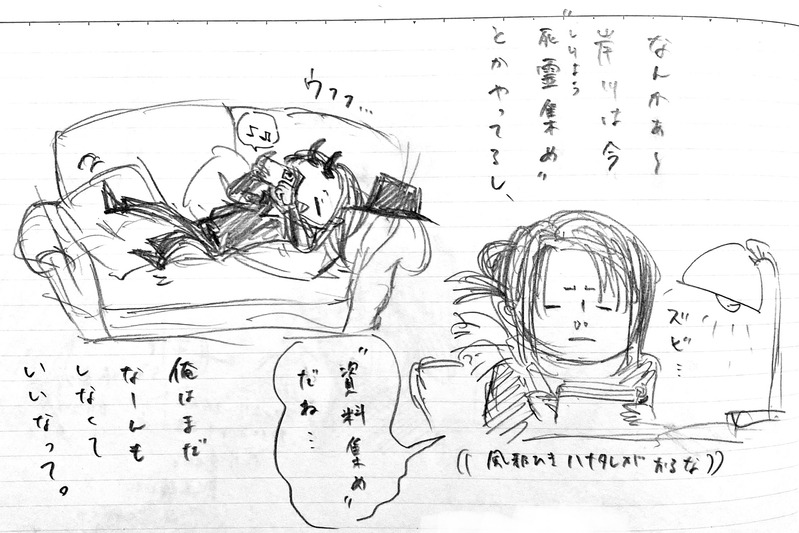 なんかぁ~
岸川は今
"しりょう
死霊集め"
とかやってるし、
ウフフ…
♪♫
俺はまだ
なーんも
しなくて
いいなって。
"資料集め"
だね…
ズビ…
((風邪ひきハナタレがおるな))